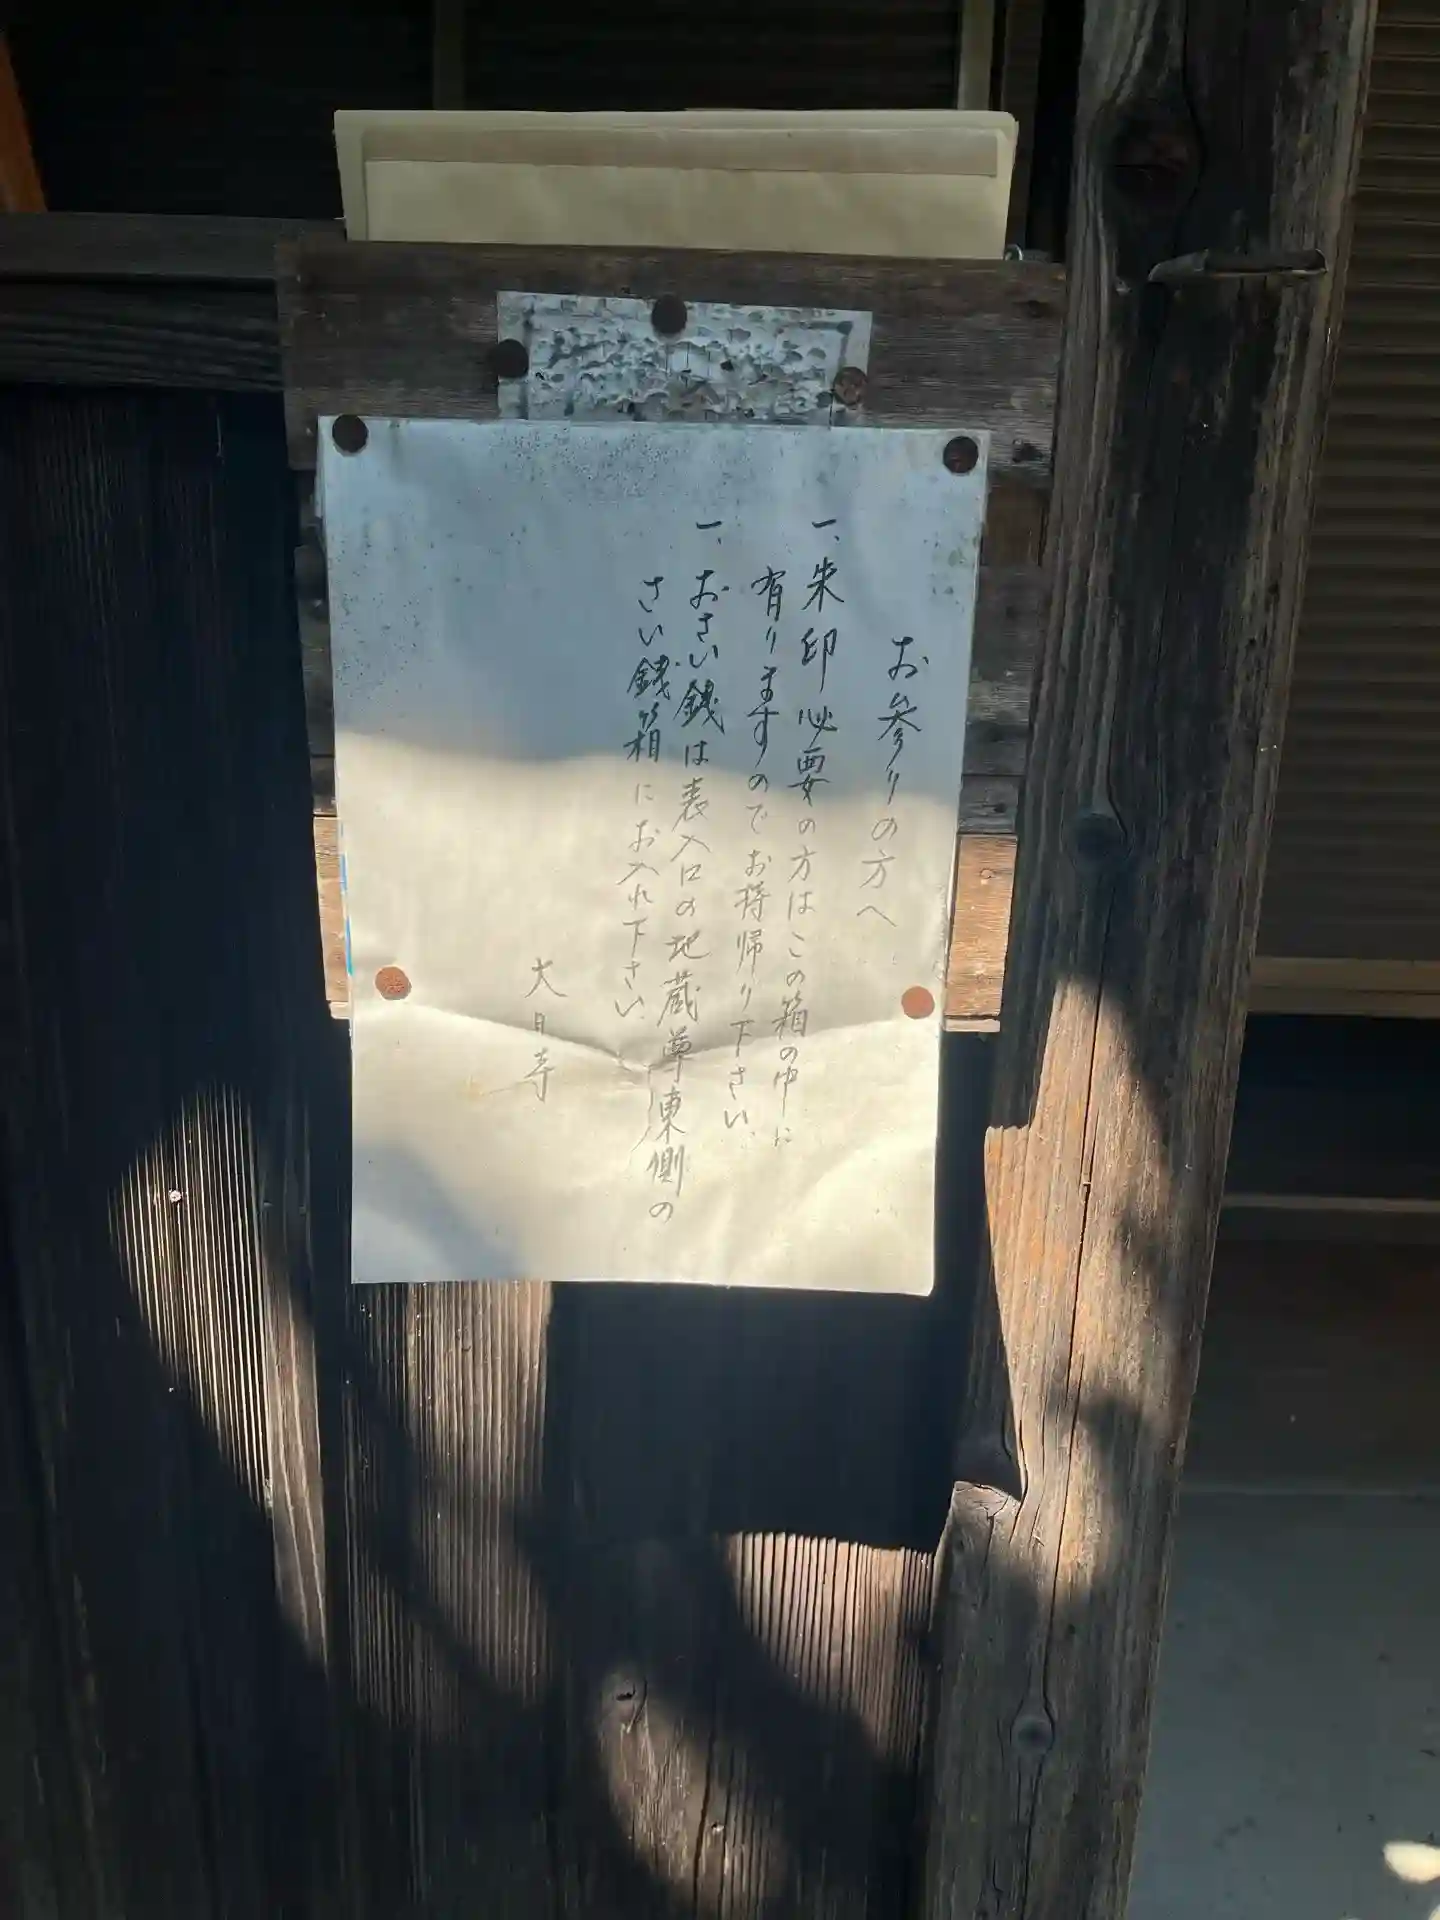 お参りの方へ
一、朱印必要の方はこの箱の中に
有りますのでお持帰り下さい、
一、おさい銭は表入口の地蔵尊東側の
さい銭箱にお入れ下さい、
大日寺